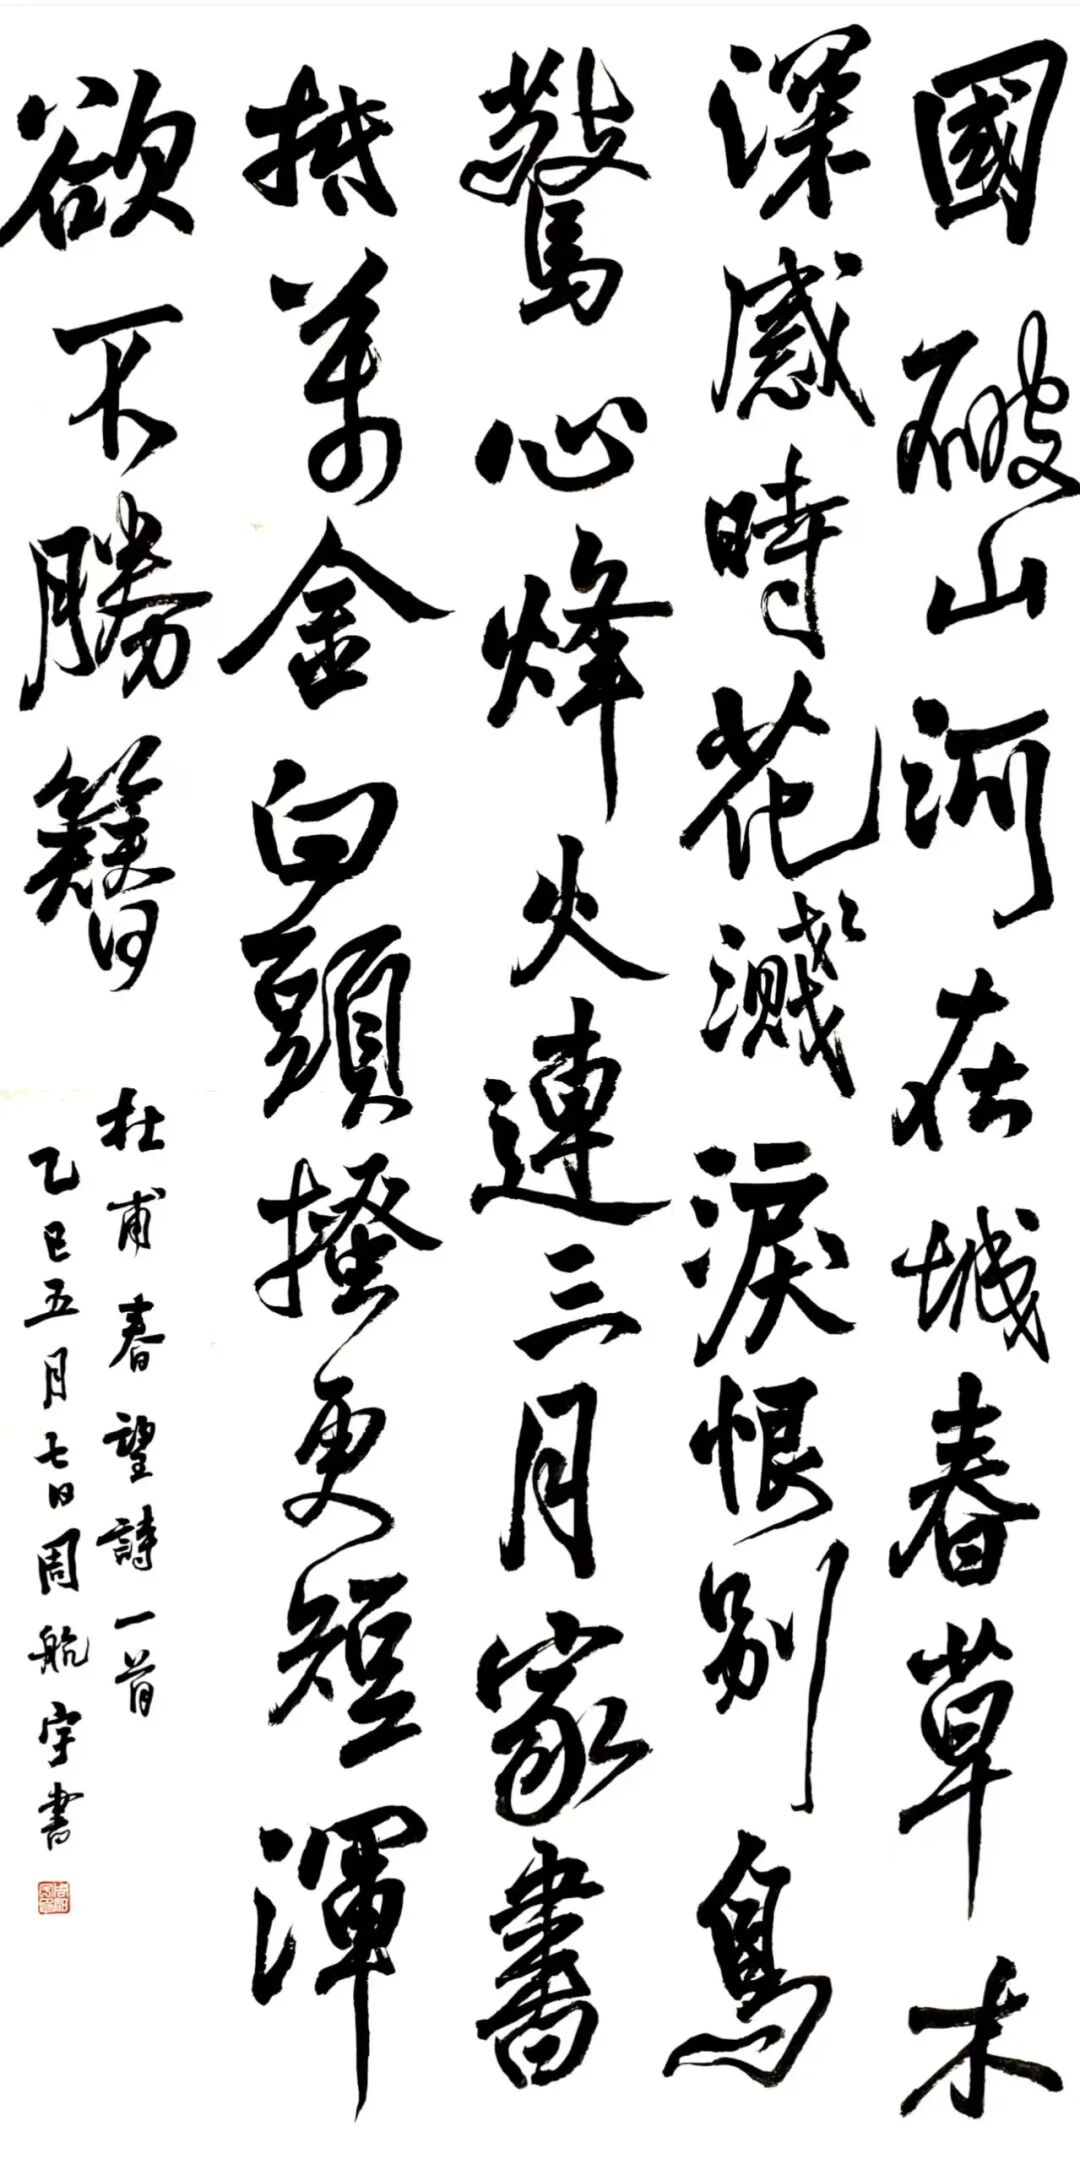 國破山河在城春草木
深感時花濺淚恨别鳥
驚心烽火連三月家書
抵萬金白頭搔更短渾
欲不勝簪
杜甫春望詩一首
乙巳五月七日周航宇書